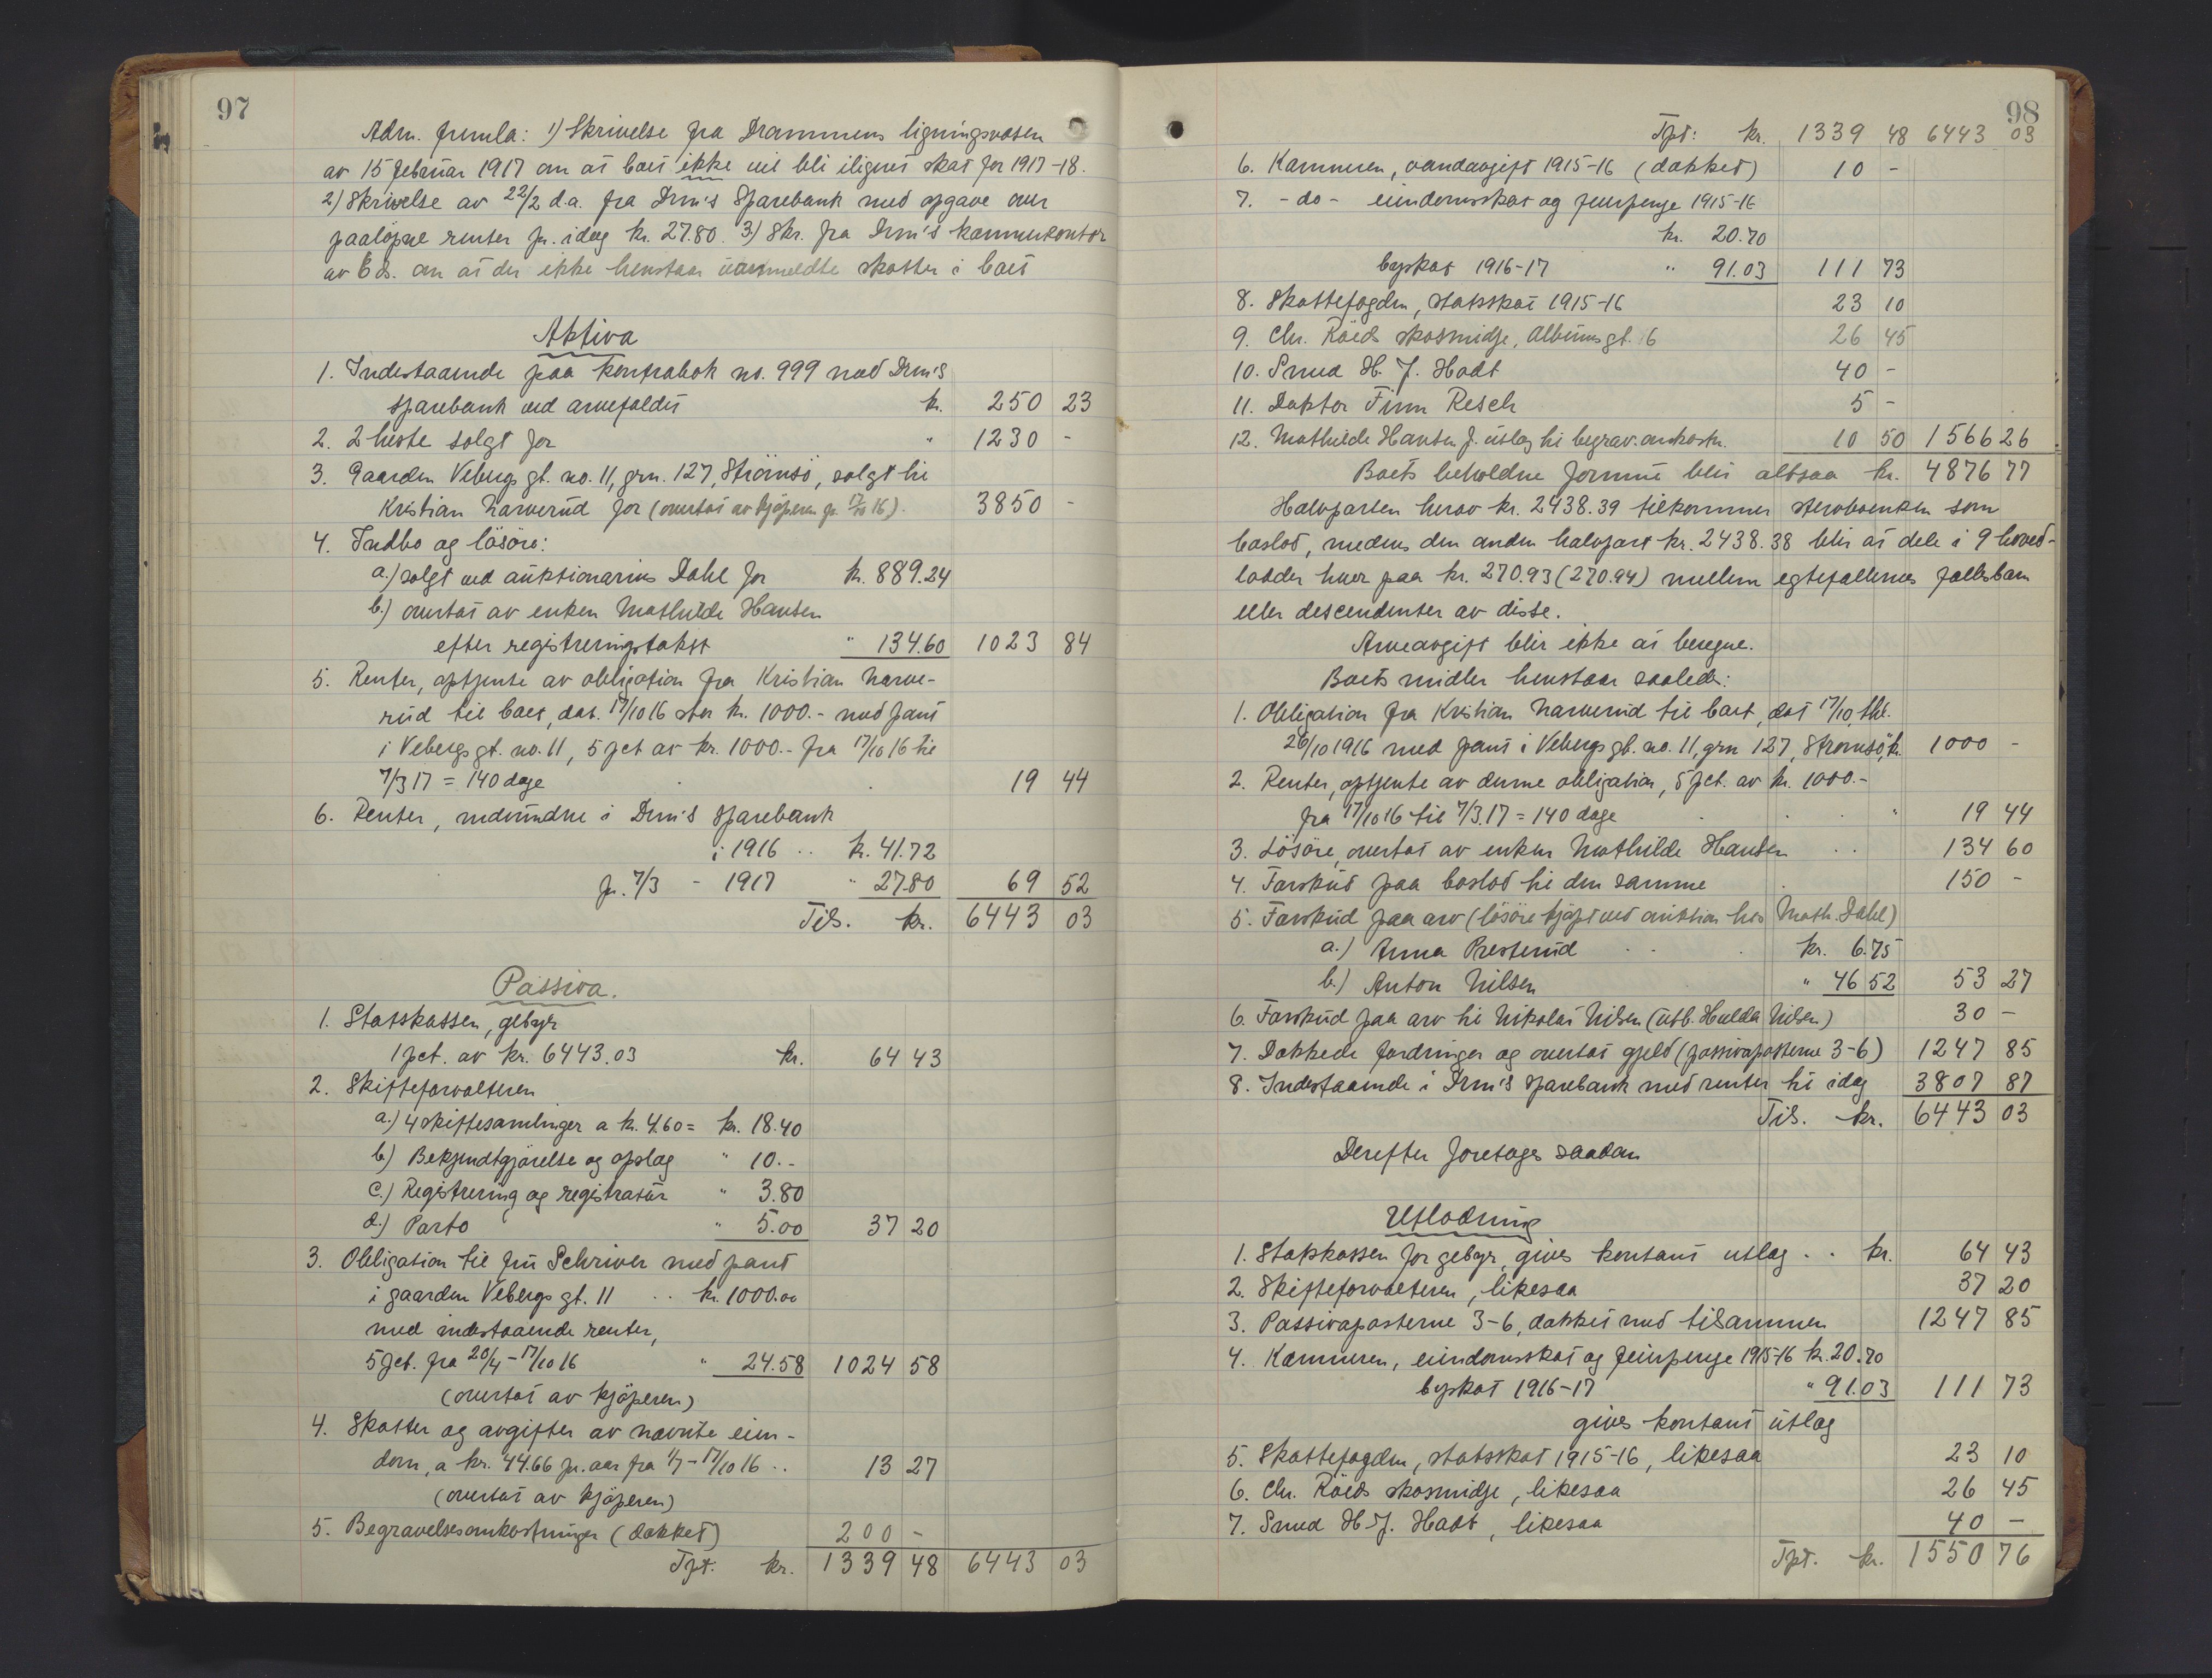 97
Adm. fremla: 1) Skrivelse fra Drammens ligningsvæsen
av 15 februar 1917 om at boet ikke vil bli ilignet skat for 1917-18.
2) Skrivelse av 22/2 d.a. fra Drm's Sparebank med opgave over
paaløpne renter pr. idag kr. 27.80. 3) Skr. fra Drm's kæmnerkontor
av 6 ds. om at der ikke henstaar uanmeldte skatter i boet
Aktiva
1. Indestaaende paa kontrabok no. 999 med Drm's
sparebank ved arvefaldet kr. 250 23
2. 2 heste solgt for " 1230 -
3. Gaarden Vebergs gt. no. 11, grn. 127, Strømsø, solgt til
Kristian Narverud for (overtat av kjøperen pr. 17/10 16). 3850 -
4. Indbo og løsøre:
a.) solgt ved auktionarius Dahl for kr. 889.24
b.) overtat av enken Mathilde Hansen
efter registreringstakst " 134.60 1023 84
5. Renter, optjente av obligation fra Kristian Narve-
rud til boet, dat. 17/10 16 stor kr. 1000.- med pant
i Vebergs gt. no. 11, 5 pct av kr. 1000.- fra 17/10 16 til
7/3 17 = 140 dage 19 44
6. Renter, indvundne i Drm's Sparebank
i 1916 .. kr. 41.72
pr. 7/3 - 1917 " 27.80 69 52
Tils. kr. 6443 03
Passiva.
1. Statskassen, gebyr
1 pct. av kr. 6443.03 kr. 64 43
2. Skifteforvalteren
a.) 4 skiftesamlinger a kr. 4.60 = kr. 18.40
b.) Bekjendtgjørelse og opslag " 10.-
c.) Registrering og registratur " 3.80
d.) Porto " 5.00 37 20
3. Obligation til fru Schriver med pant
i gaarden Vebergs gt. 11 .. kr. 1000.00
med indestaaende renter,
5 pct. fra 20/4 - 17/10 16 " 24.58 1024 58
(overtat av kjøperen)
4. Skatter og avgifter av nævnte eien-
dom, a kr. 44.66 pr. aar fra 1/7 - 17/10 16 .. 13 27
(overtat av kjøperen)
5. Begravelsesomkostninger (dækket) 200 -
Tpt. kr. 1339 48 6443 03
98
Tpt: kr. 1339 48 6443 03
6. Kæmneren, vandavgift 1915-16 (dækket) 10 -
7. - do - eiendomsskat og feierpenge 1915-16
kr. 20.70
byskat 1916-17 " 91.03 111 73
8. Skattefogden, statsskat 1915-16 23 10
9. Chr. Røeds skosmidje, Albumsgt. 16 26 45
10. Smed H. J. Hodt 40 -
11. Doktor Finn Resch 5 -
12. Mathilde Hansen f. utlæg til begrav. omkostn. 10 50 1566 26
Boets beholdne formue blir altsaa kr. 4876 77
Halvparten herav kr. 2438.39 tilkommer sterboenken som
boslod, medens den anden halvpart kr. 2438.38 blir at dele i 9 hoved-
lodder hver paa kr. 270.93 (270.94) mellem egtefællernes fællesbarn
eller descendenter av disse.
Arveavgift blir ikke at beregne.
Boets midler henstaar saaledes:
1. Obligation fra Kristian Narverud til boet, dat 17/10, thl.
26/10 1916 med pant i Vebergs gt. no. 11, grn 127, Strømsø, kr. 1000 -
2. Renter, optjente av denne obligation, 5 pct. av kr. 1000.-
fra 17/10 16 til 7/3.17 = 140 dage " 19 44
3. Løsøre, overtat av enken Mathilde Hansen .. 134 60
4. Forskud paa boslod til den samme 150 -
5. Forskud paa arv (løsøre kjøpt ved auktion hos Math. Dahl)
a.) Anna Presterud kr. 6.75
b.) Anton Nilsen " 46 52 53 27
6. Forskud paa arv til Nikolai Nilsen (utb. Hulda Nilsen) 30 -
7. Dækkede fordringer og overtat gjeld (passivaposterne 3-6) 1247 85
8. Indestaaende i Drm's sparebank med renter til idag 3807 87
Tils. kr. 6443 03
Derefter foretoges saadan
Utlodning
1. Statskassen for gebyr, gives kontant utlæg .. kr. 64 43
2. Skifteforvalteren, likesaa 37 20
3. Passivaposterne 3-6, dækket med tilsammen 1247 85
4. Kæmneren, eiendomsskat og feierpenge 1915-16 kr. 20.70
byskat 1916-17 " 91.03 111 73
gives kontant utlæg
5. Skattefogden, statsskat 1915-16, likesaa 23 10
6. Chr. Røeds skosmidje, likesaa 26 45
7. Smed H. J. Hodt, likesaa 40 -
Tpt. kr. 1550 76